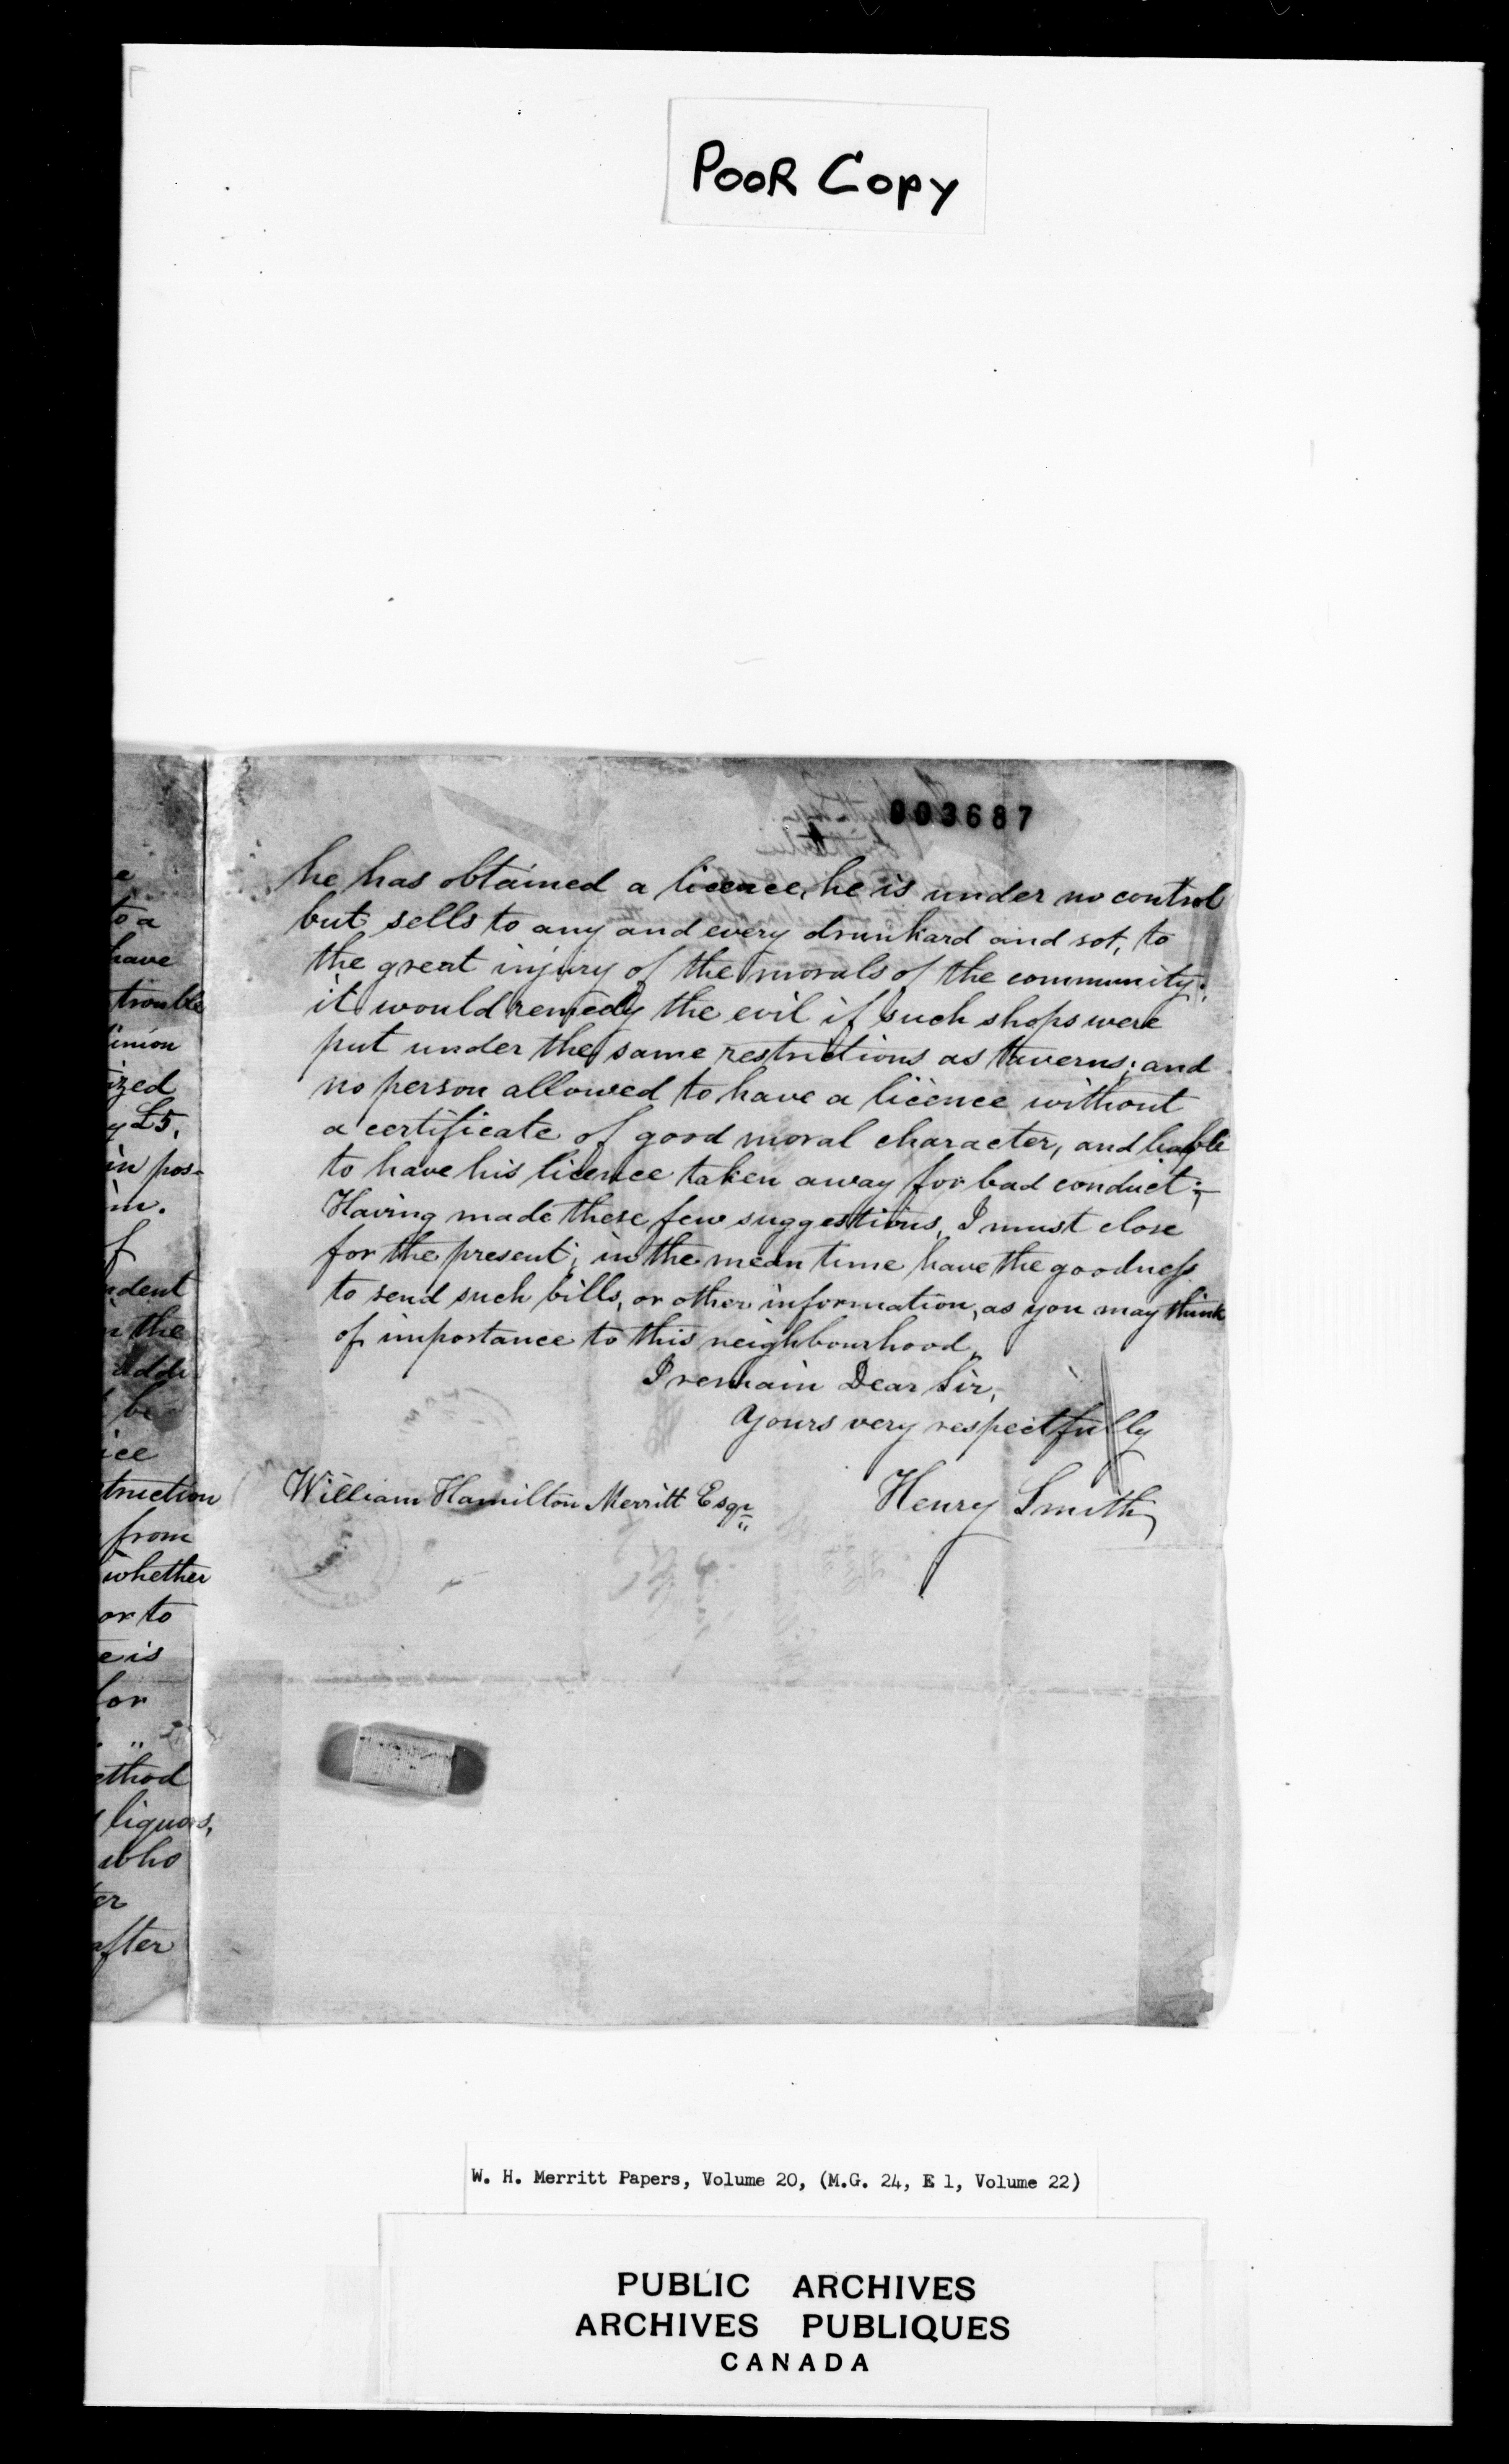 POOR COPY
003687
he has obtained a licence, he is under no control
but sells to any and every drunkard and sot, to
the great injury of the morals of the community;
it would remedy the evil if such shops were
put under the same restrictions as taverns; and
no person allowed to have a licence without
a certificate of good moral character, and liable
to have his licence taken away for bad conduct;—
Having made these few suggestions, I must close
for the present; in the mean time have the goodness
to send such bills, or other information, as you may think
of importance to this neighbourhood,
I remain Dear Sir,
Yours very respectfully
William Hamilton Merritt Esqr
Henry Smith
to a
have
trouble
£5,
in pos-
in the
be
from
whether
or to
is
liquors,
who
after
W. H. Merritt Papers, Volume 20, (M.G. 24, E 1, Volume 22)
PUBLIC ARCHIVES
ARCHIVES PUBLIQUES
CANADA